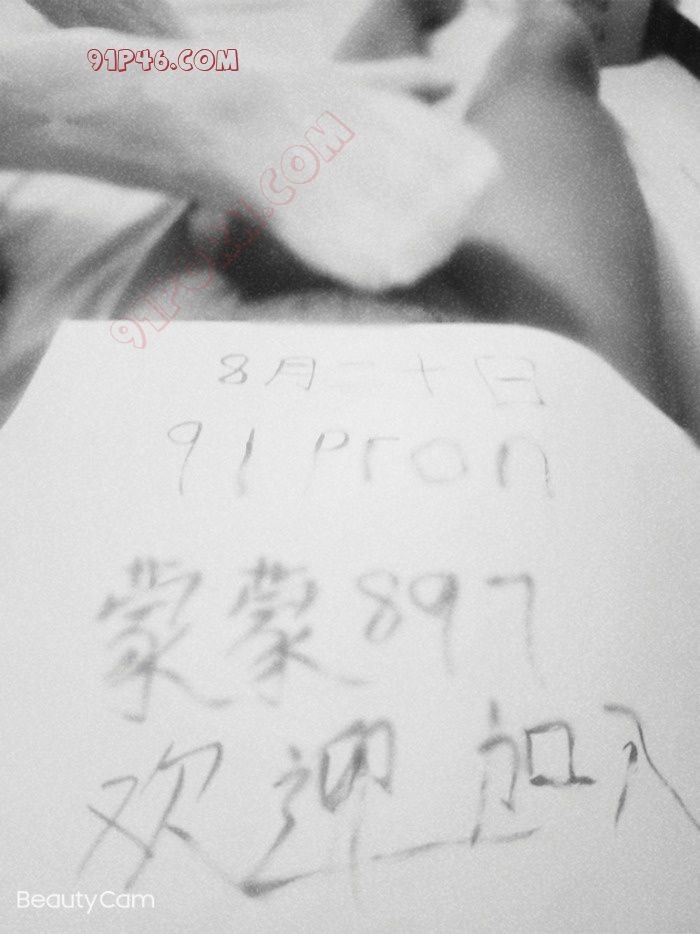 91P46.COM
8月二十日
91 Pron
蒙蒙897
欢迎加入
BeautyCam